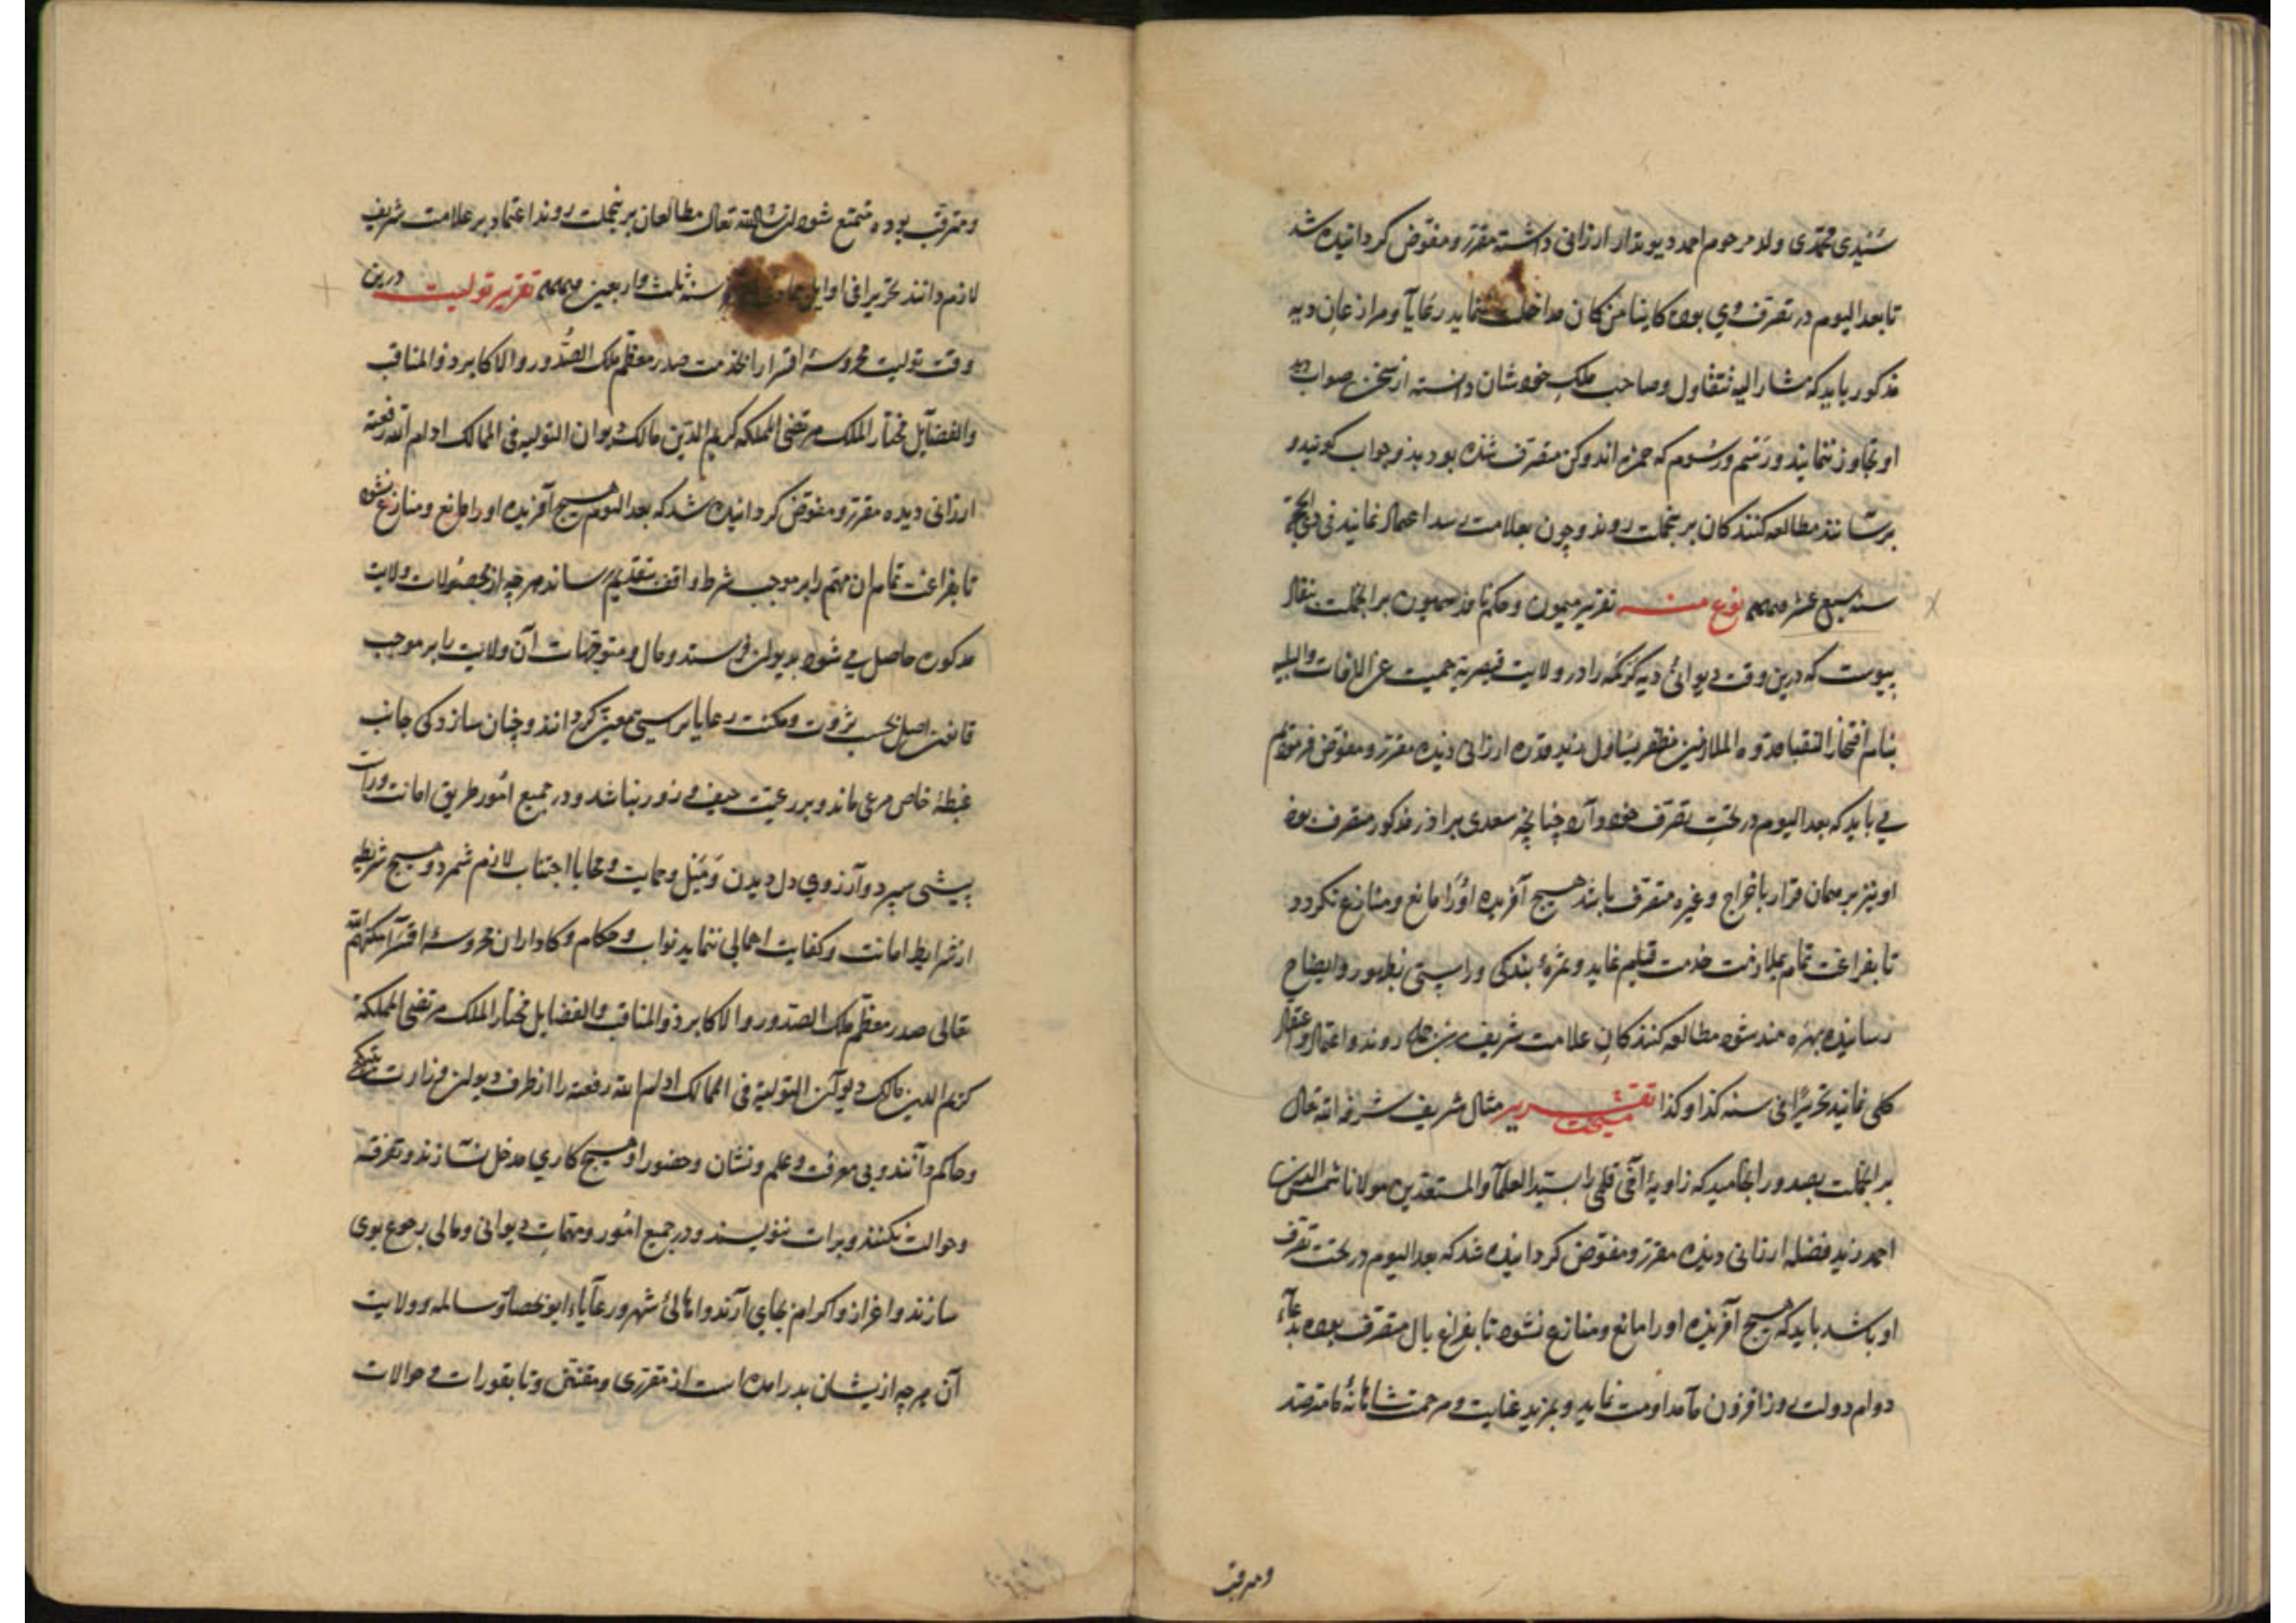 سیدی محمدی ولد مرحوم احمد دیوندار ارزانی داشته مقرر و مفوض کردانیده شد
تا بعد الیوم در تصرف وی بوده کاینا من کان مداخلت ننماید رعایا و مزارعان دیه
مذکور باید که مشار الیه متقاول و صاحب ملک خودشان دانسته از سخن صواب
او تجاوز ننمایند و رسم و رسوم که حمزه متصرف شده بود بذو جواب کویند و
برسانند مطالعه کنندکان برینجملت روند و چون بعلامت رسد اعتماد نمایند فی ذی الحجة
سنه سبع عشر نوع منه تقریر میمون و حکم نافذ همیون برانجملت نفاذ
پیوست که درین وقت دیوانئ دیه را در ولایت قیصریه حمیت عن الافات والبلیه
بنام افتخار النقبا قدوه الملازمین مظفر یساول زید قدره ارزانی دیده مقرر و مفوض فرمودیم
می باید که بعد الیوم در تحت تصرف خود آرد چنانچه سعدی برادر مذکور متصرف بود
او نیز بر همان قرار باخراج و غیره متصرف باشد هیچ آفریده اورا مانع و منازع نکردد
تا بفراغت تمام بملازمت خدمت قیام نماید و ثمرهٔ بندکی و راستی بظهور و ایضاح
رسانیده بهره مند شود مطالعه کنندکان علامت شریف برین جمله روند و اعتماد
کلی نمایند تحریرا فی سنه کذا و کذا تقریر مشیخت مثال شریف شرفه الله تعالی
برانجملت بصدور انجامید که زاویهٔ را بسید العلما والمستعدین مولانا شمس الدین
احمد زید فضله ارزانی دیده مقرر و مفوض کردانیده شد که بعد الیوم در تحت تصرف
او باشد باید که هیچ آفریده اورا مانع و منازع نشود تا بفراغ بال متصرف بوده بدعاء
دوام دولت روز افزون ما مداومت نماید و بمزید عنایت و مرحمت شاهانهٔ ما مترصد
ومترقب
ومترقب بوده متمتع شود ان شاالله تعالی مطالعان برینجملت روند اعتماد بر علامت شریف
لازم دانند تحریرا فی اوایل سنه ثلث واربعین تقریر تولیت درین
وقت تولیت محروسهٔ اقسرا را بخدمت صدر معظم ملک الصدور والاکابر ذو المناقب
والفضایل مختار الملک مرتضی المملکه کریم الدین مالک دیوان التولیه فی الممالک ادام الله رفعته
ارزانی دیده مقرر و مفوض کردانیده شد که بعد الیوم هیچ آفریده اورا مانع و منازع نشود
تا بفراغت تمام ان مهم را بر موجب شرط واقف بتقدیم رساند هرچه از محصولات ولایت
مذکوره حاصل می شود بدیوان فرستد و مال و متوجهات آن ولایت را بر موجب
قانون اصل بحسب ثروت و مکنت رعایا براستی تعیین کرداند و چنان سازد کی جانب
غبطهٔ خاص مرعی ماند و بر رعیت حیف و زور نباشد و در جمیع امور طریق امانت و راست
پیشی سپرد و آرزوی دل دیدن و میل و حمایت و محابا اجتناب لازم شمرد و هیچ شریطه
از شرایط امانت و کفایت اهمالی ننماید نواب و حکام و کاداران محروسهٔ اقسرا مکنهم الله
تعالی صدر معظم ملک الصدور والاکابر ذو المناقب والفضایل مختار الملک مرتضی المملکة
کریم الدین مالک دیوان التولیه فی الممالک ادام الله رفعته را از طرف دیوان وزارت
و حاکم دانند و بی معرفت و علم و نشان و حضور او هیچ کاری مدخل نسازند و تفرقه
و حوالت نکنند و برات ننویسند و در جمیع امور و مهمات دیوانی و مالی رجوع بوی
سازند و اعزاز و اکرام بجای آرند و اهالئ شهر و رعایاء ایوبحصار و سالمه و ولایت
آن هرچه ازیشان بدر آمده است از مقرری و مقنن و تابقورات و حوالات